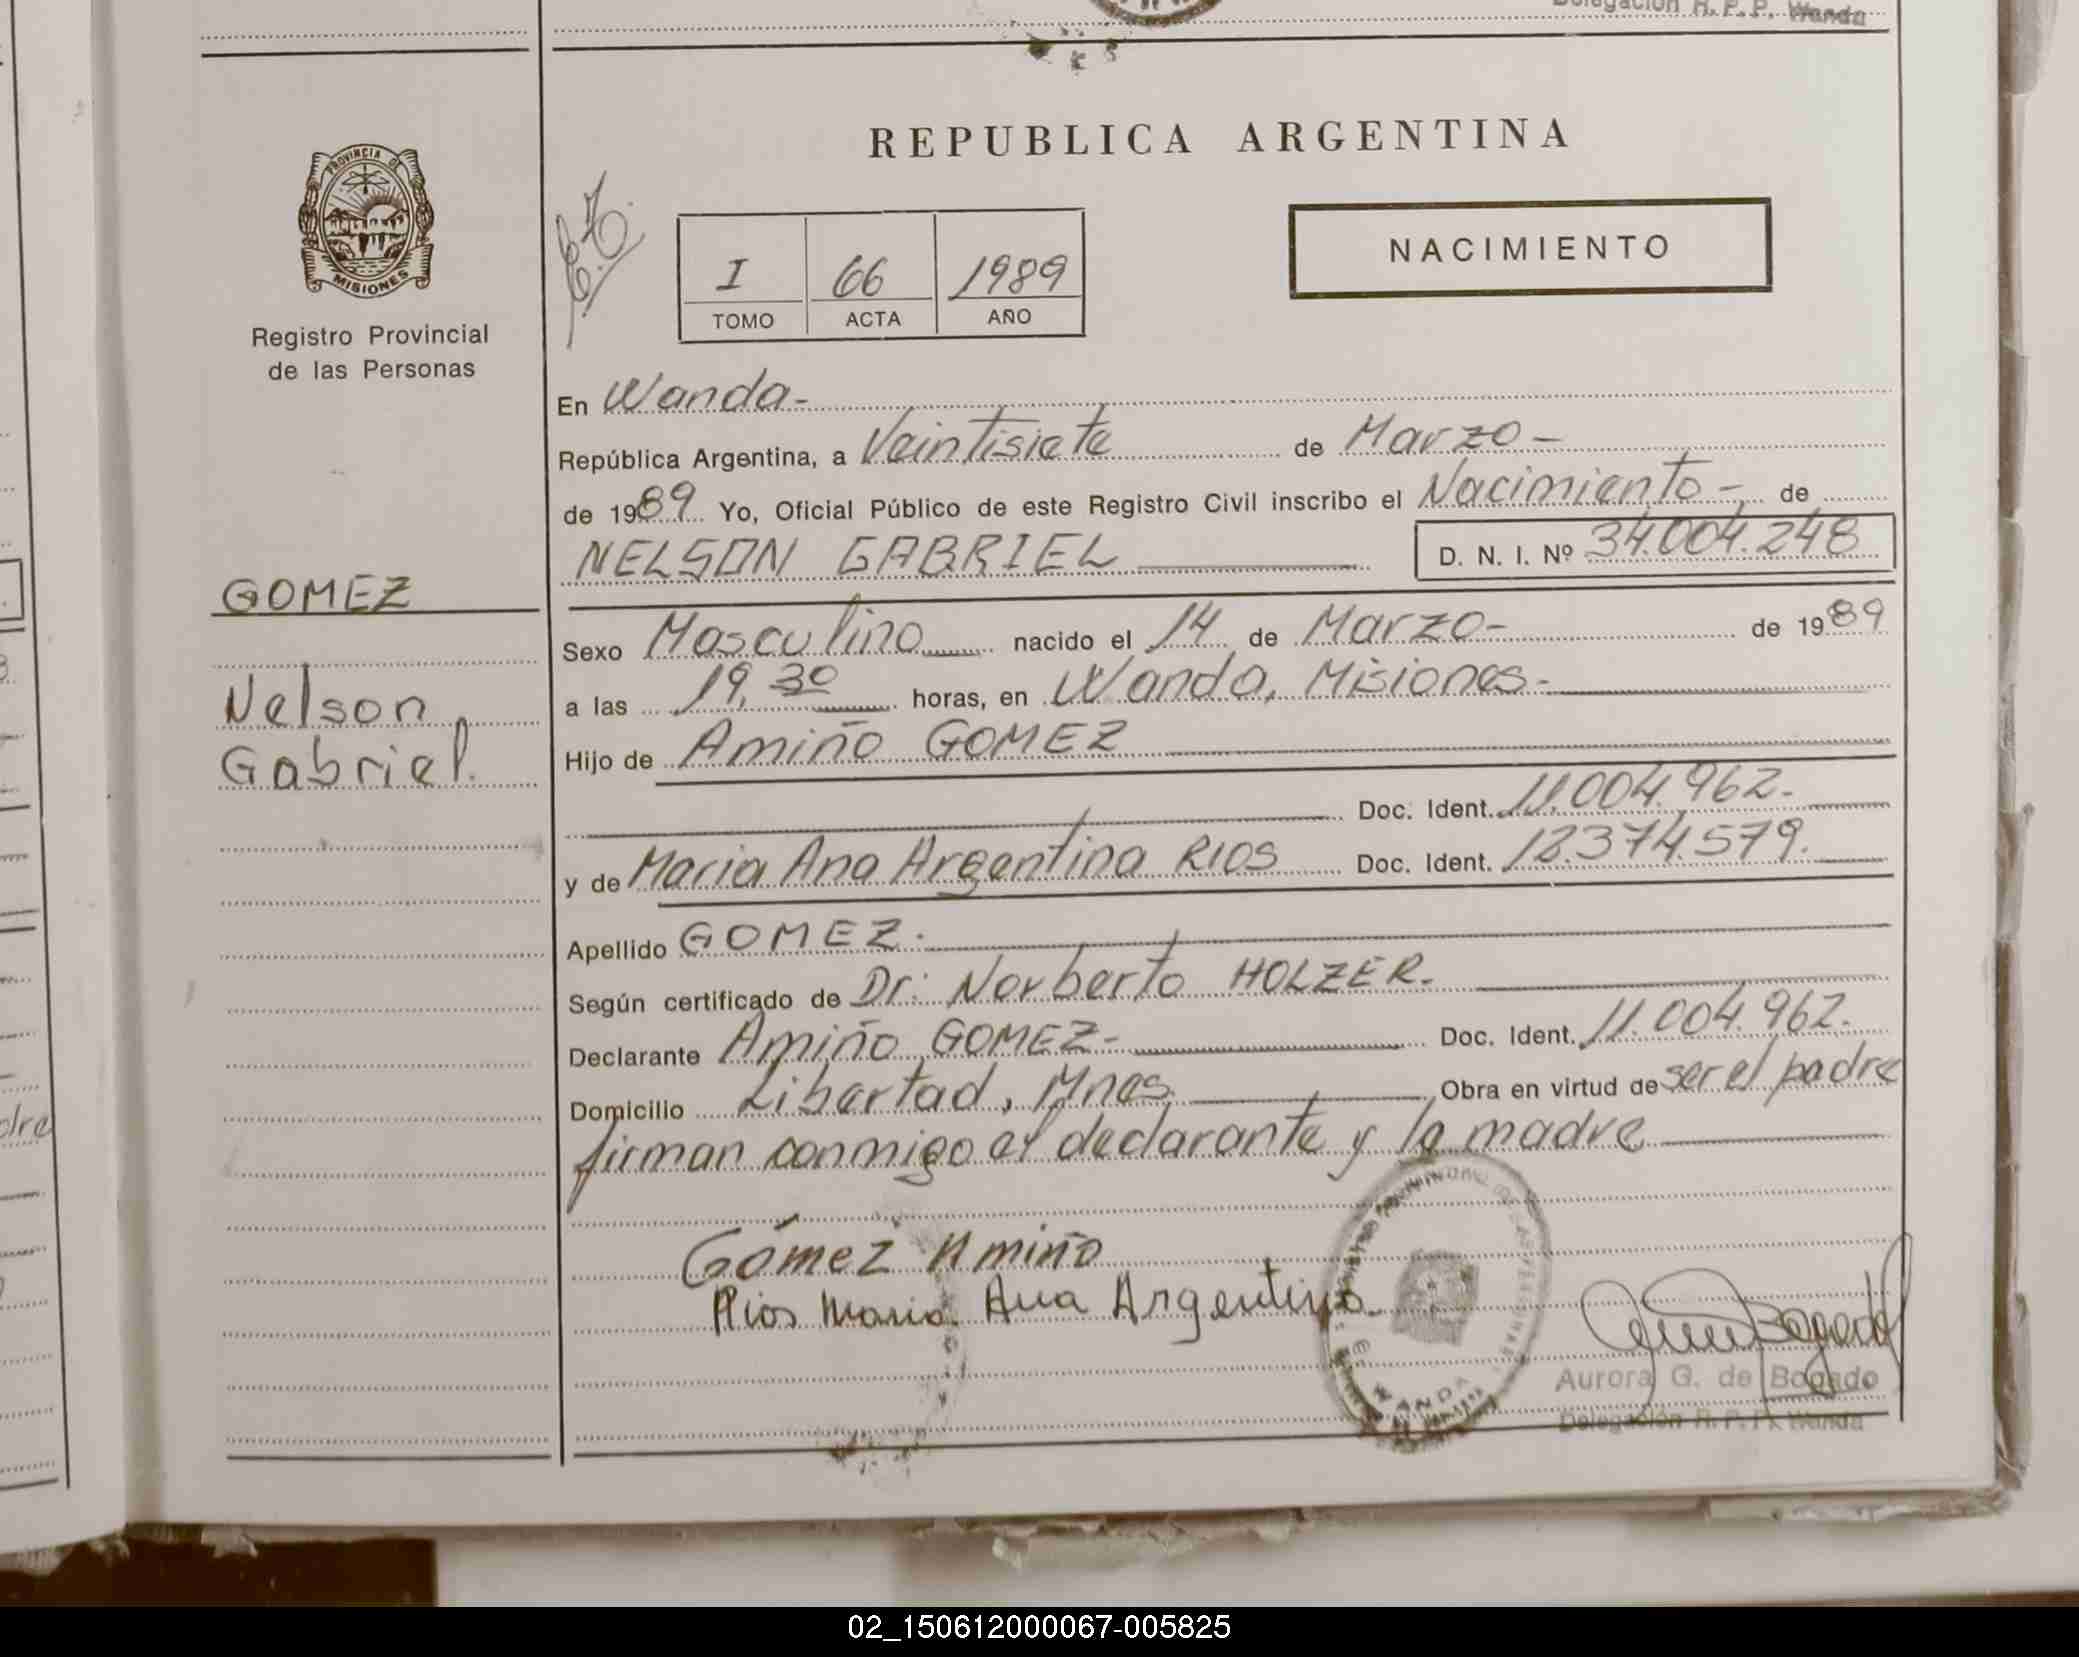 Delegación R. P. P. Wanda
REPUBLICA ARGENTINA
PROVINCIA D
MISIONES
Registro Provincial
de las Personas
I 66 1989
TOMO ACTA AÑO
NACIMIENTO
En Wanda-
República Argentina, a Veintisiete de Marzo-
de 1989 Yo, Oficial Público de este Registro Civil inscribo el Nacimiento-, de
NELSON GABRIEL D. N. I. Nº 34.004.248
GOMEZ
Sexo Masculino nacido el 14 de Marzo- de 1989
Nelson
a las 19,30 horas, en Wanda, Misiones-
Gabriel.
Hijo de Amiño GOMEZ
Doc. Ident. 11.004.962.-
y de Maria Ana Argentina RIOS Doc. Ident. 12.374.579.
Apellido GOMEZ.
Según certificado de Dr: Norberto HOLZER.
Declarante Amiño GOMEZ- Doc. Ident. 11.004.962.-
Domicilio Libertad, Mnes Obra en virtud de ser el padre
firman conmigo el declarante y la madre
Gómez Amiño
Rios Maria Ana Argentina
WANDA
Aurora G. de Bogado
Delegación R. P. P. Wanda
02_150612000067-005825